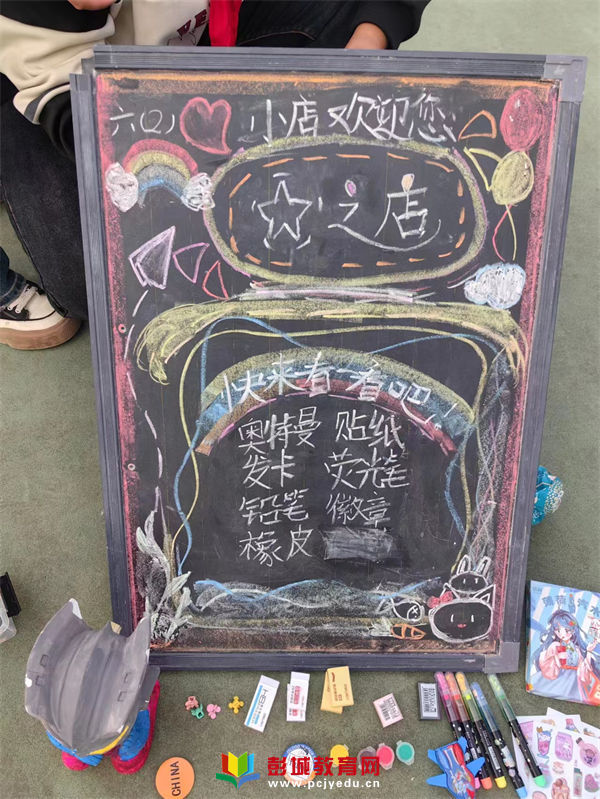 六(2) 小店欢迎您
☆之店
快来看一看吧!
奥特曼 贴纸
发卡 荧光笔
铅笔 徽章
橡皮
CHINA
彭城教育网
www.pcjyedu.cn